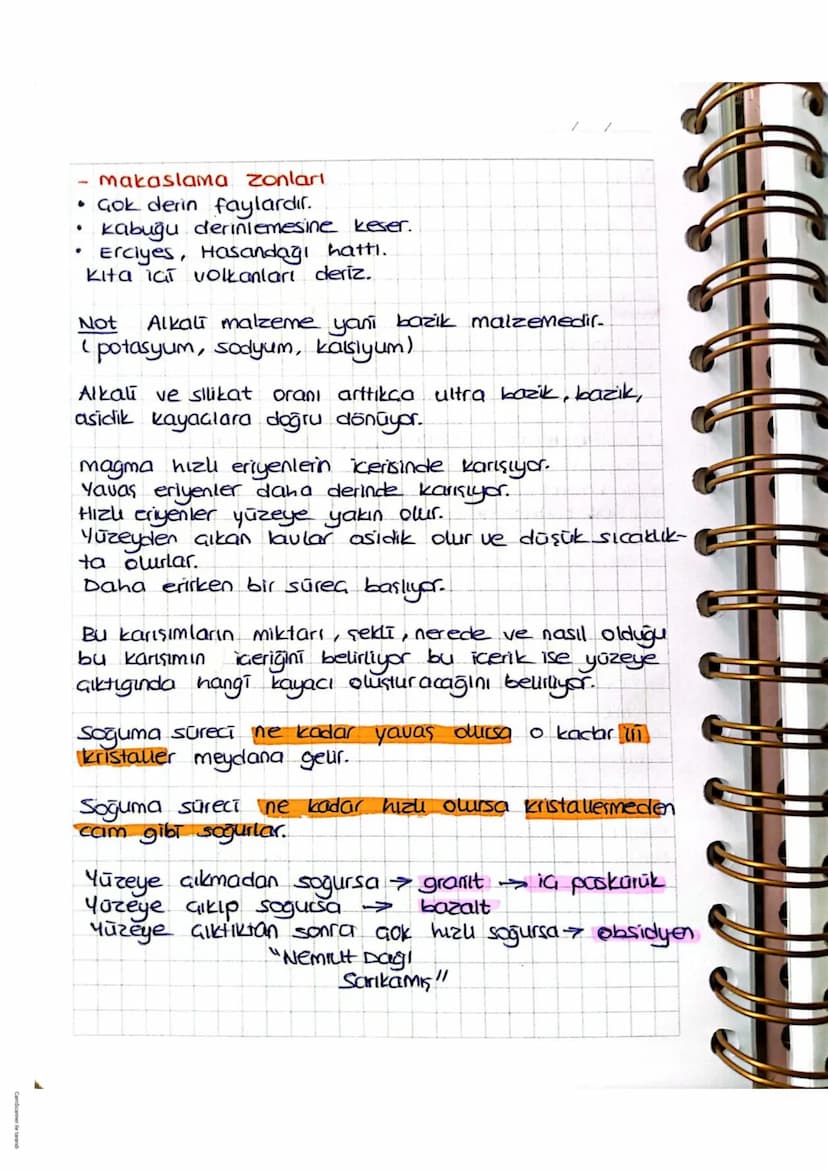 / /
- makaslama zonları
• Çok derin faylardır.
• Kabuğu derinlemesine keser.
• Erciyes, Hasandağı hattı.
Kıta içi volkanları deriz.
Not Alkali malzeme yani bazik malzemedir.
(potasyum, sodyum, kalsiyum)
Alkali ve silikat oranı arttıkça ultra bazik, bazik,
asidik kayaçlara doğru dönüyor.
magma hızlı eriyenlerin içerisinde karışıyor.
Yavaş eriyenler daha derinde karışıyor.
Hızlı eriyenler yüzeye yakın olur.
Yüzeyden çıkan lavlar asidik olur ve düşük sıcaklık-
ta olurlar.
Daha erirken bir süreç başlıyor.
Bu karışımların miktarı, şekli, nerede ve nasıl olduğu
bu karışımın içeriğini belirliyor bu içerik ise yüzeye
çıktıgında hangi kayacı oluşturacağını belirliyor.
Soğuma süreci ne kadar yavaş olursa o kadar iri
kristaller meydana gelir.
Soğuma süreci ne kadar hızlı olursa kristalleşmeden
cam gibi soğurlar.
Yüzeye çıkmadan soğursa → granit → iç püskürük
Yüzeye çıkıp soğursa → bazalt
Yüzeye çıktıktan sonra çok hızlı soğursa → obsidyen
"Nemrut Dağı
Sarıkamış"
CamScanner ile tarandı